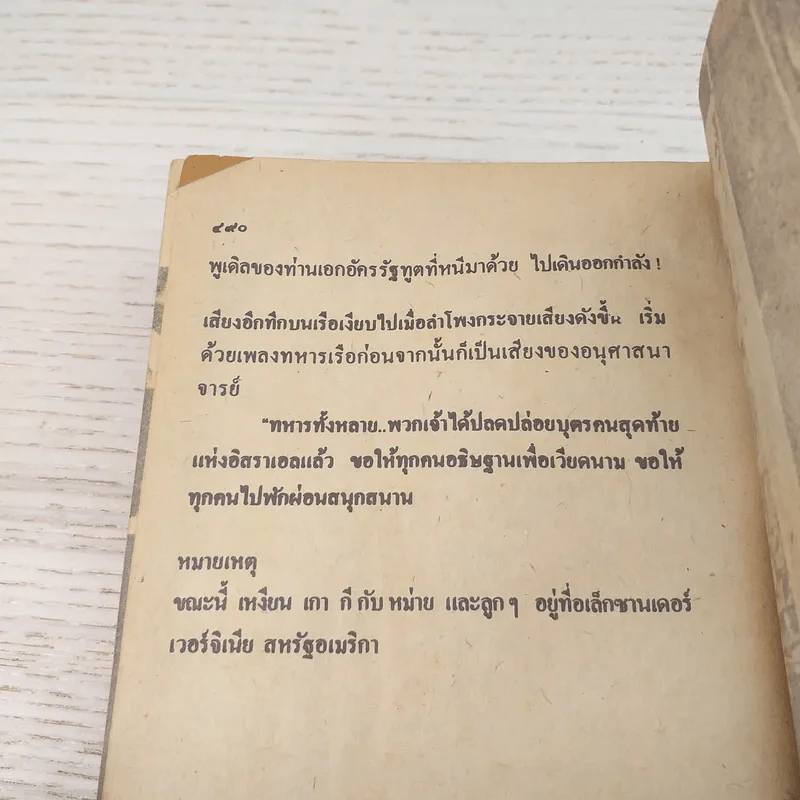 ๔๙๐
พูเดิลของท่านเอกอัครรัฐทูตที่หนีมาด้วย ไปเดินออกกำลัง !
เสียงอึกทึกบนเรือเงียบไปเมื่อลำโพงกระจายเสียงดังขึ้น เริ่ม
ด้วยเพลงทหารเรือก่อนจากนั้นก็เป็นเสียงของอนุศาสนา
จารย์
“ทหารทั้งหลาย..พวกเจ้าได้ปลดปล่อยบุตรคนสุดท้าย
แห่งอิสราเอลแล้ว ขอให้ทุกคนอธิษฐานเพื่อเวียดนาม ขอให้
ทุกคนไปพักผ่อนสนุกสนาน
หมายเหตุ
ขณะนี้ เหงียน เกา กี กับ หม่าย และลูก ๆ อยู่ที่อเล็กซานเดอร์
เวอร์จิเนีย สหรัฐอเมริกา